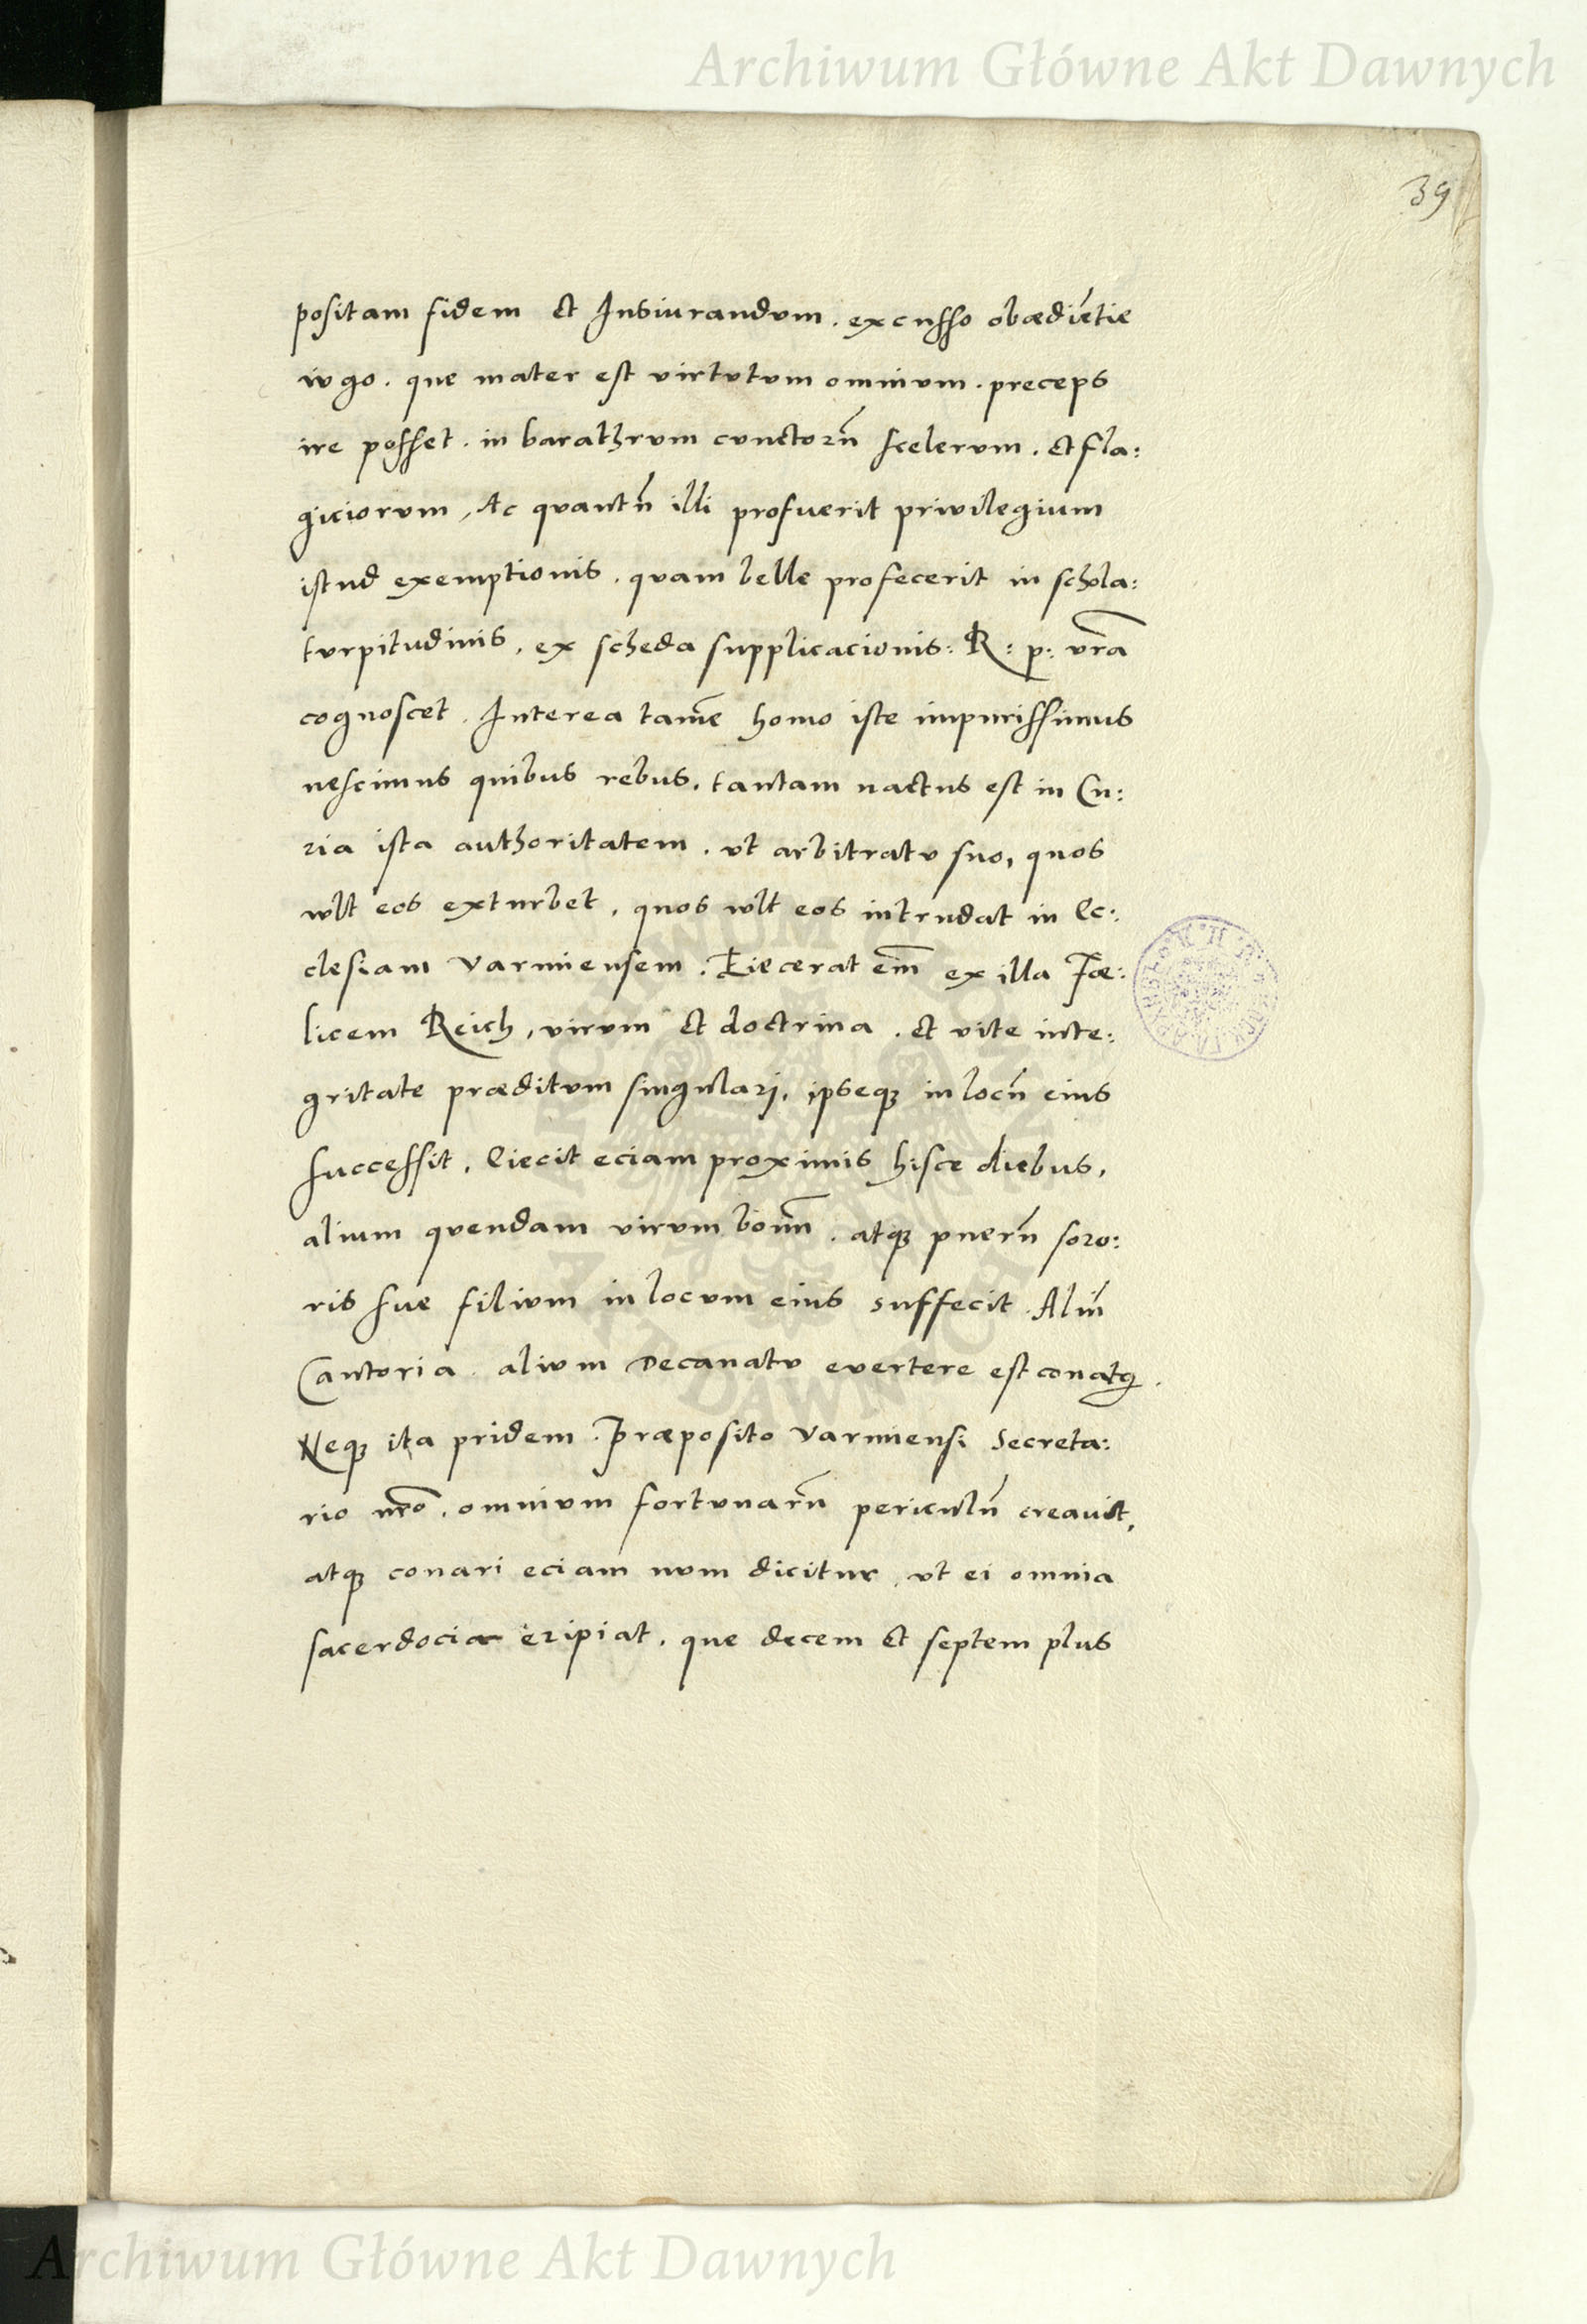 Archiwum Główne Akt Dawnych
39
positam fidem et Iusiurandum. excusso obædiētie
iugo. que mater est virtutum omnium. preceps
ire posset. in barathrum cunctorū scelerum. et fla:
giciorum, Ac quantū illi profuerit privilegium
istud exemptionis. quam belle profecerit in schola:
turpitudinis, ex scheda supplicacionis: R: p: vr̃a
cognoscet. Interea tamē homo iste impurissimus
nescimus quibus rebus. tantam nactus est in Cu:
ria ista authoritatem. ut arbitratu suo, quos
vult eos exturbet, quos vult eos intrudat in Ec:
clesiam Varmiensem. Eiecerat em̄ ex illa Fœ:
licem Reich, virum et doctrina. et vite inte:
gritate præditum singulari, ipseqꝫ in locū eius
successit. Eiecit eciam proximis hisce diebus,
alium quendam virum bonū. atqꝫ puerū soro:
ris sue filium in locum eius suffecit. Aliū
Cantoria. alium Decanatu evertere est conatꝰ.
Neqꝫ ita pridem. Præposito Varmiensi Secreta:
rio nr̃o. omnium fortunarū periculū creavit,
atqꝫ conari eciam num dicitur, ut ei omnia
sacerdocia eripiat. que decem et septem plus
Archiwum Główne Akt Dawnych